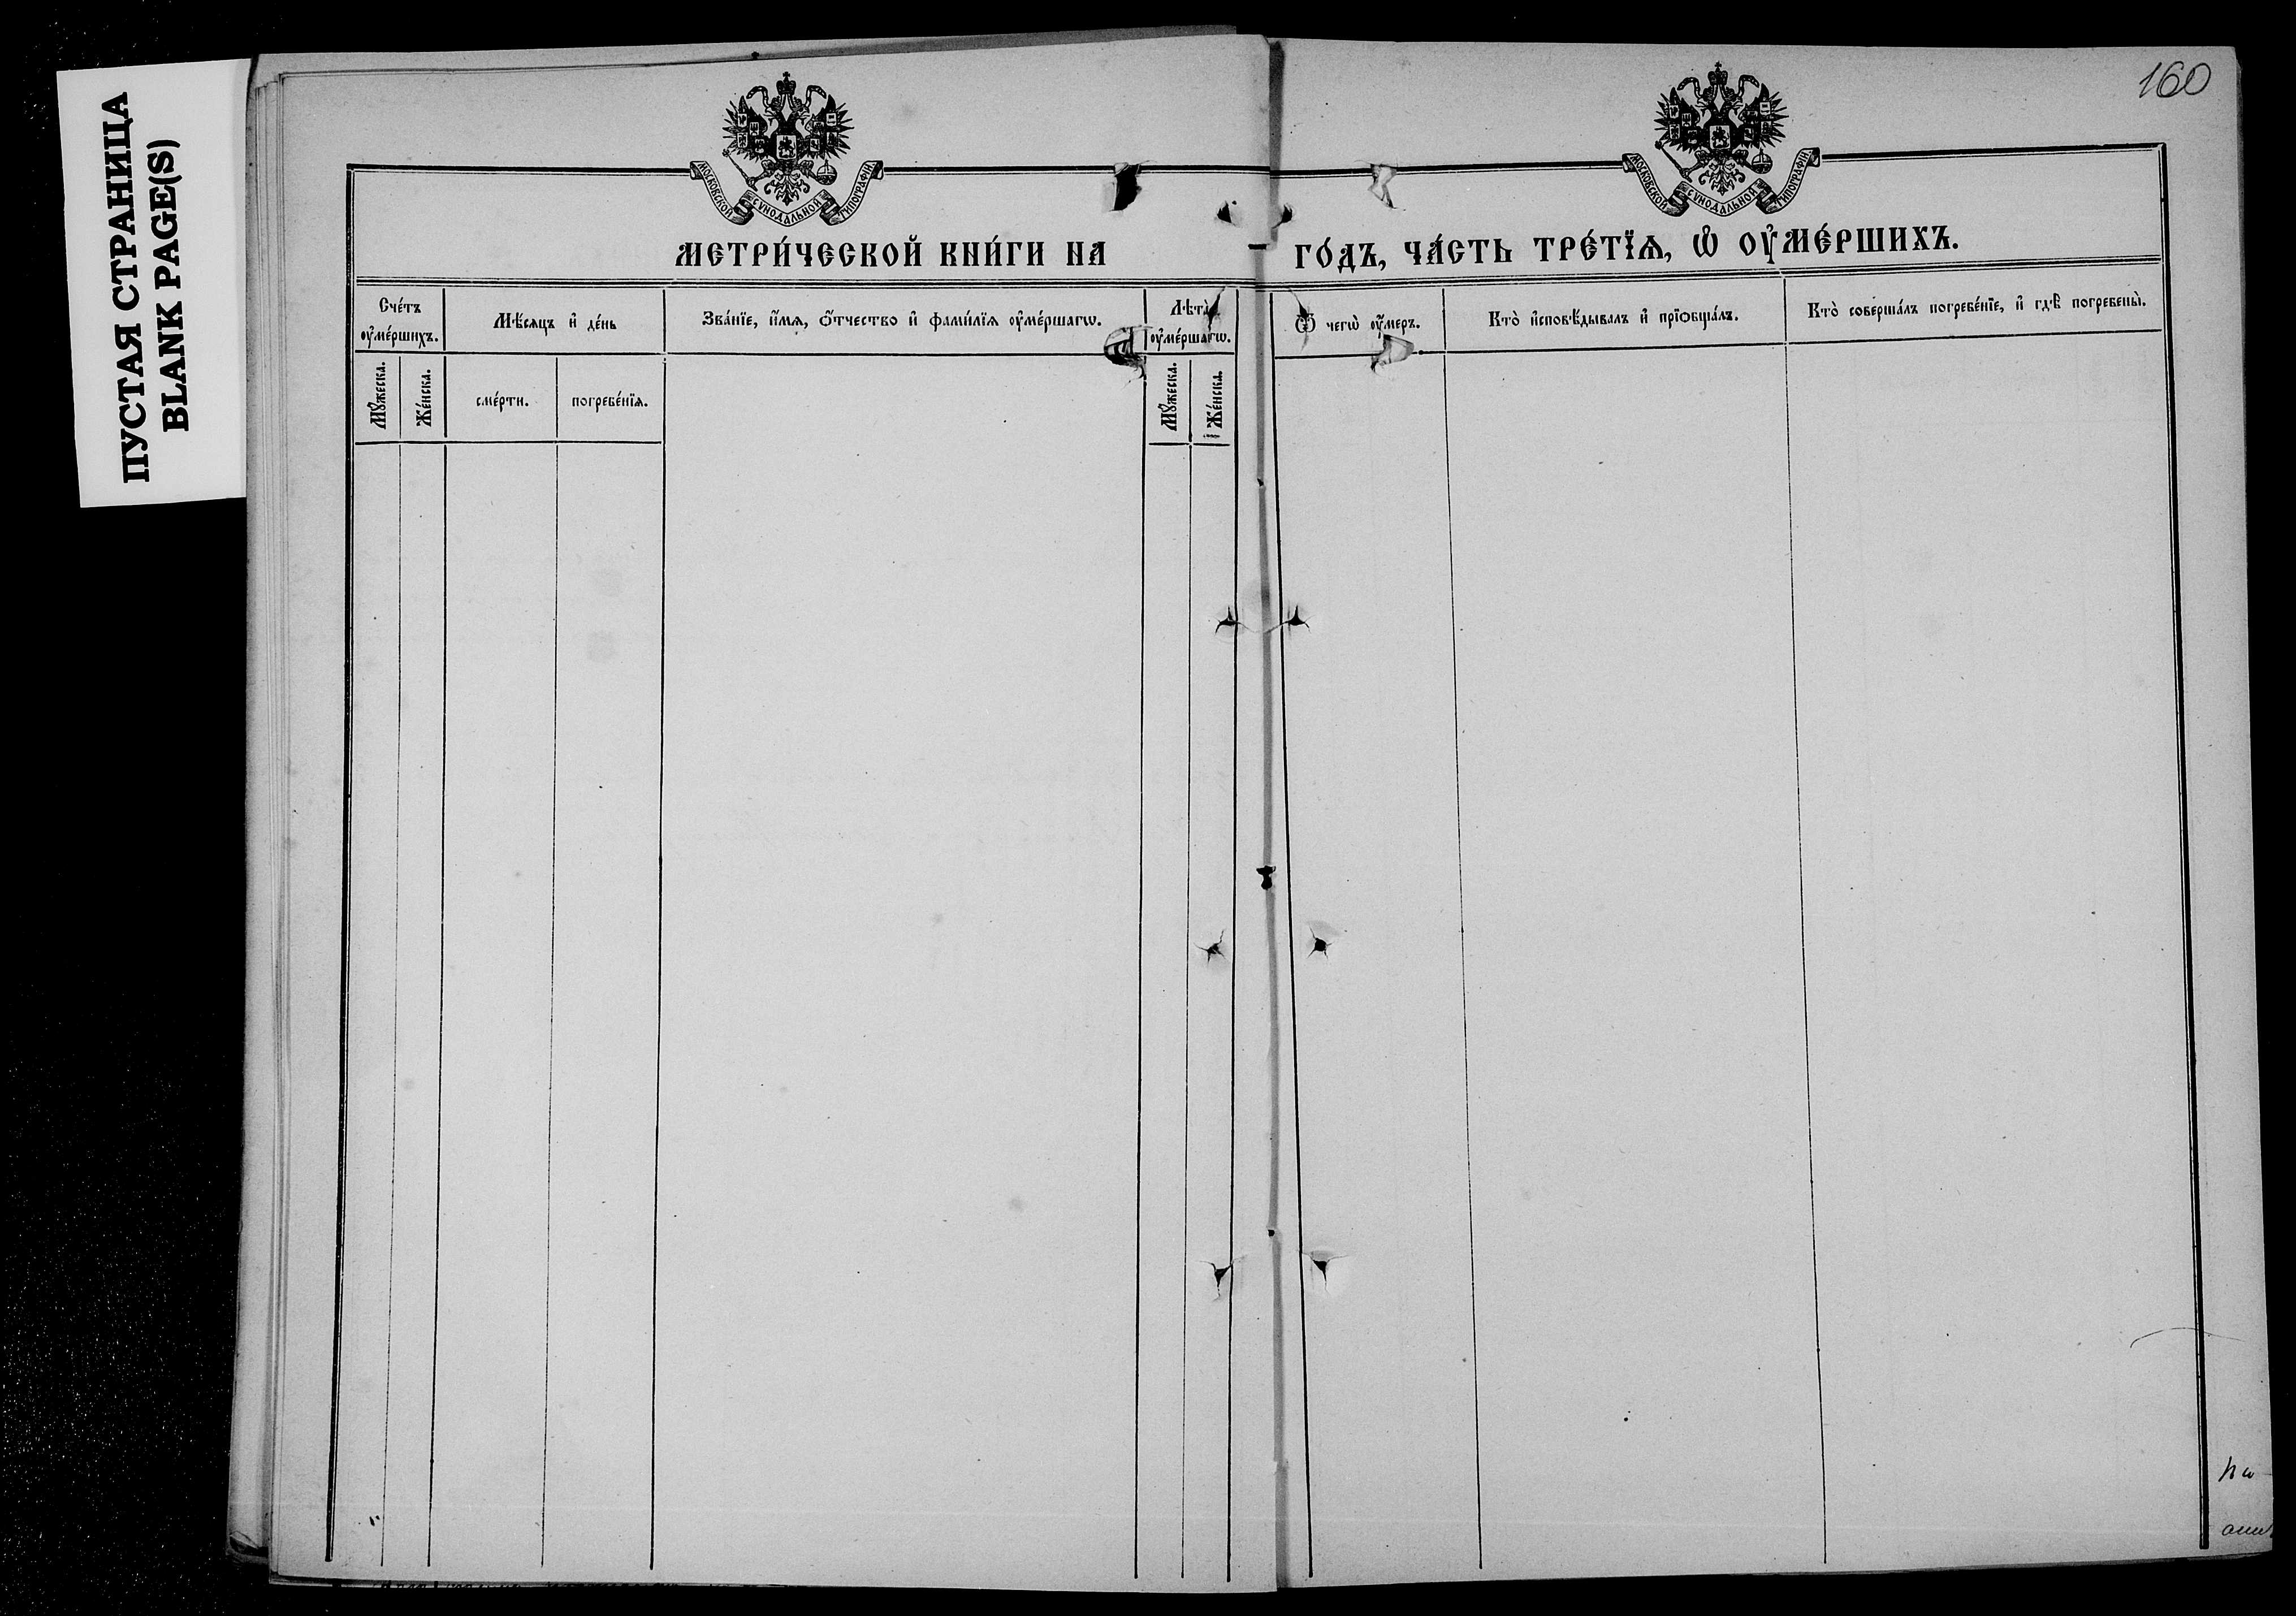 ПУСТАЯ СТРАНИЦА
BLANK PAGE(S)
160
МОСКОВСКОЙ СУНОДАЛЬНОЙ ТИПОГРАФІИ
МОСКОВСКОЙ СУНОДАЛЬНОЙ ТИПОГРАФІИ
МЕТРИ́ЧЕСКОЙ КНИ́ГИ НА ГО́ДЪ, ЧА́СТЬ ТРЕ́ТЇѦ, Ѡ҆ ОУ҆МЕ́РШИХЪ.
Сче́тъ
оу҆ме́ршихъ.
Мѣ́сяцъ и҆ де́нь
Зва́нїе, и҆́мѧ, ѻ҆́тчество и҆ фами́лїѧ оу҆ме́ршагѡ.
Лѣ́та
оу҆ме́ршагѡ.
Ѿ чегѡ̀ оу҆́меръ.
Кто̀ и҆сповѣ́дывалъ и҆ прїѡбща́лъ.
Кто̀ соверша́лъ погребе́нїе, и҆ гдѣ̀ погребены̀.
Мꙋ́жеска.
Же́нска.
сме́рти.
погребе́нїѧ.
Мꙋ́жеска.
Же́нска.